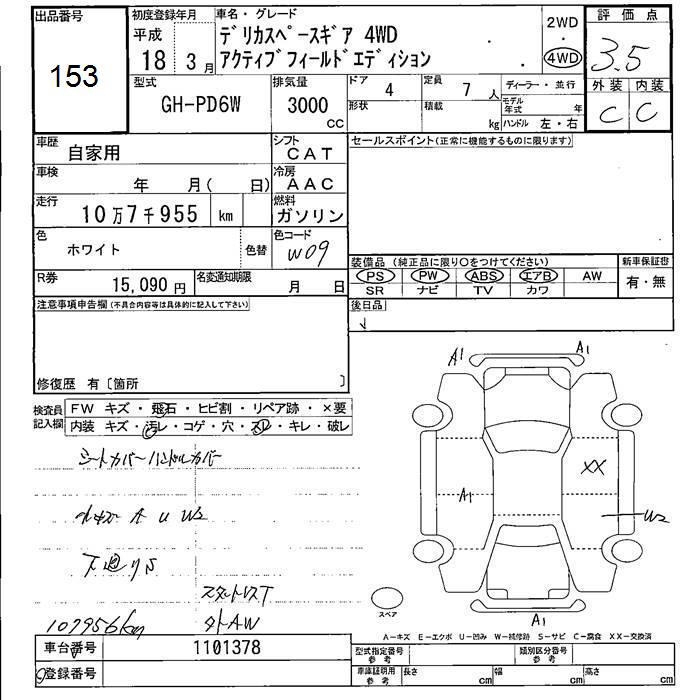 出品番号 初度登録年月 車名・グレード 評価点
153
平成 18年 3月
デリカスペースギア 4WD
アクティブフィールドエディション
2WD
・
4WD
3.5
型式 排気量 ドア 4 定員 7人 ディーラー・並行 外装 内装
GH-PD6W 3000cc 形状 積載 kg モデル年式 年 C C
ハンドル 左・右
車歴 自家用 シフト CAT セールスポイント(正常に機能するものに限ります)
車検 年 月( 日) 冷房 AAC
走行 10万7千955 km 燃料 ガソリン
色 ホワイト 色替 色コード W09
装備品 (純正品に限り○をつけてください) 新車保証書
PS PW ABS エアB AW 有・無
SR ナビ TV カワ
R券 15,090円 名変通知期限 月 日
後日品
注意事項申告欄(不具合内容等は具体的に記入して下さい)
修復歴 有〔箇所 〕
検査員記入欄
FW キズ・飛石・ヒビ割・リペア跡・×要
内装 キズ・汚レ・コゲ・穴・スレ・キレ・破レ
シートカバー ハンドルカバー
A U W2
下廻りS
スタットレスT
107956km
外AW
A1 A1
A1 XX
W2
A1
スペア
A-キズ E-エクボ U-凹み W-補修跡 S-サビ C-腐食 XX-交換済
車台番号 1101378
登録番号
型式指定番号 参考 類別区分番号 参考
車庫証明用 参考 長さ cm 幅 cm 高さ cm